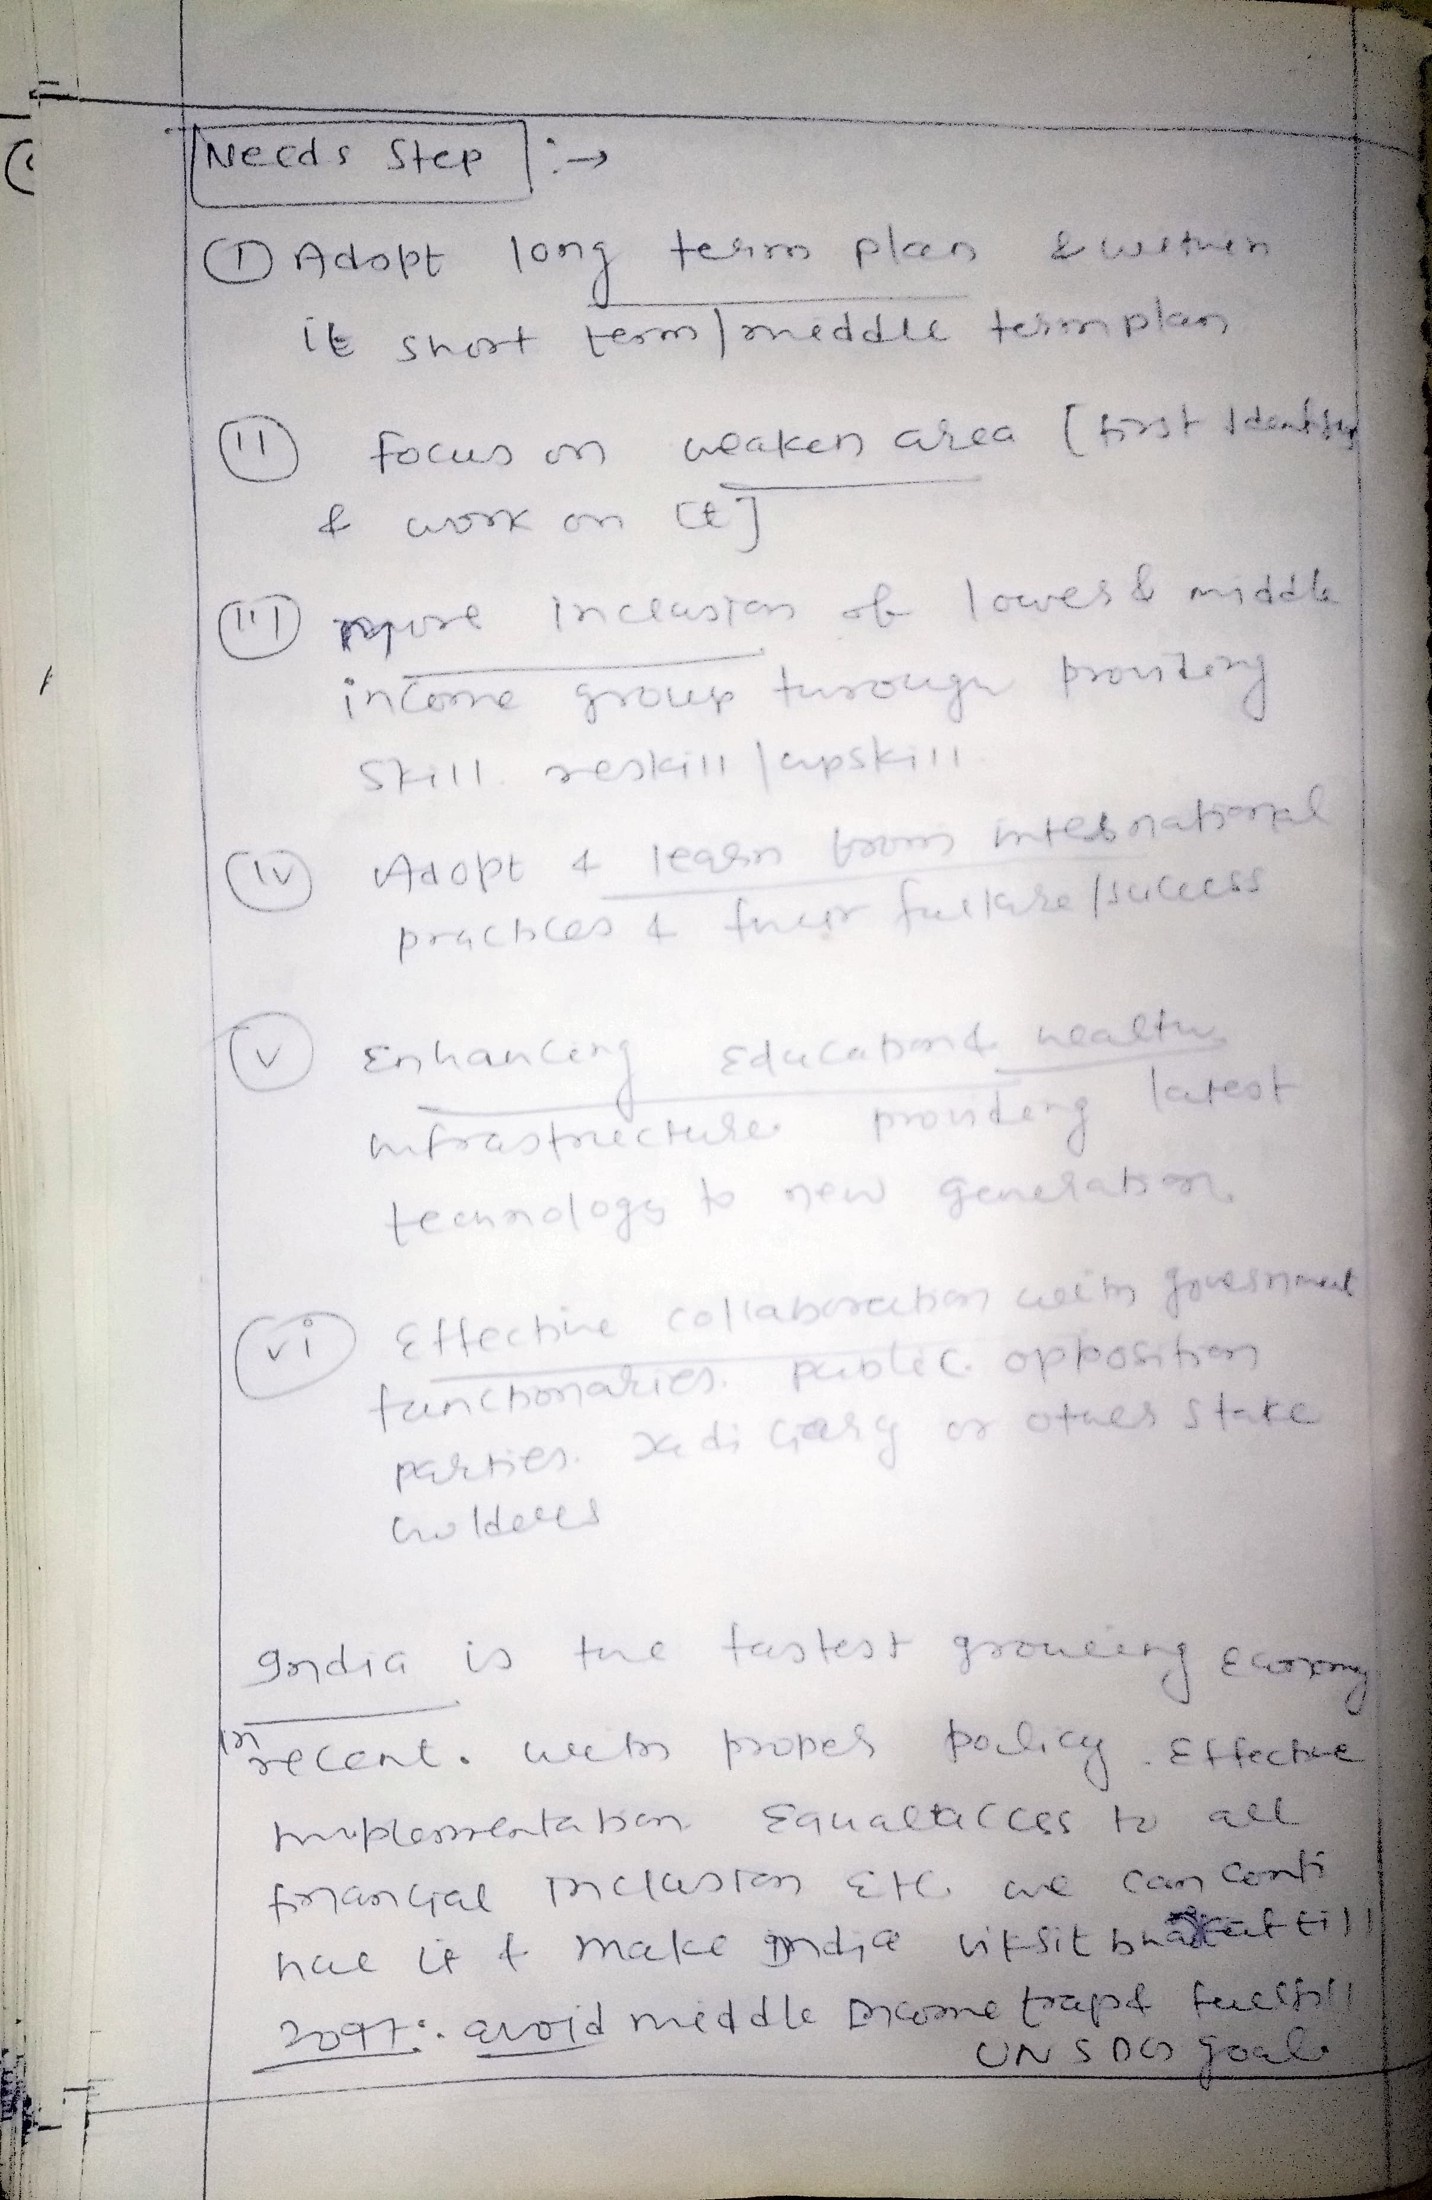 Needs Step :→
(I) Adopt long term plan & within
it short term/middle term plan
(II) focus on weaken area [first Identify
& work on it]
(III) more inclusion of lower & middle
income group through providing
Skill. reskill/upskill.
(iv) Adopt & learn from international
practices & their failure/success
(v) Enhancing Education & health
infrastructure providing latest
technology to new generation.
(vi) Effective collaboration with government
functionaries. public. opposition
parties. or other stake
holders
India is the fastest growing Economy
in recent. with proper policy. Effective
Implementation Equal access to all
financial inclusion Etc. we can conti
nue it & make India viksit bharat till
2047. avoid middle Income trap & fulfill
UN SDG goal.